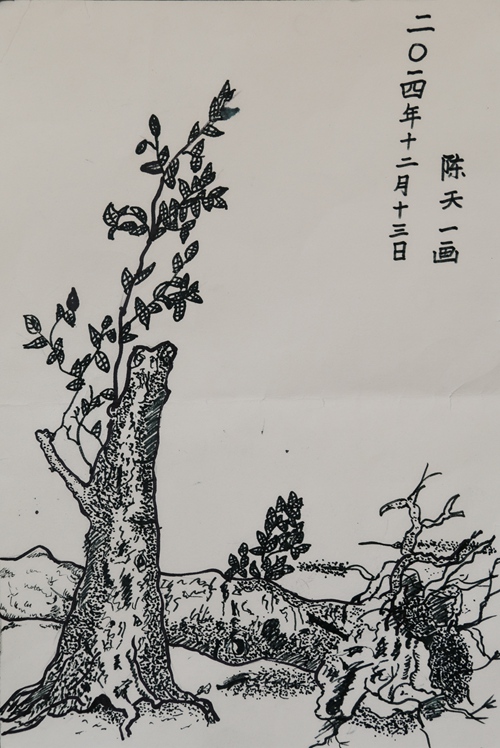 陈天一画
二〇一四年十二月十三日